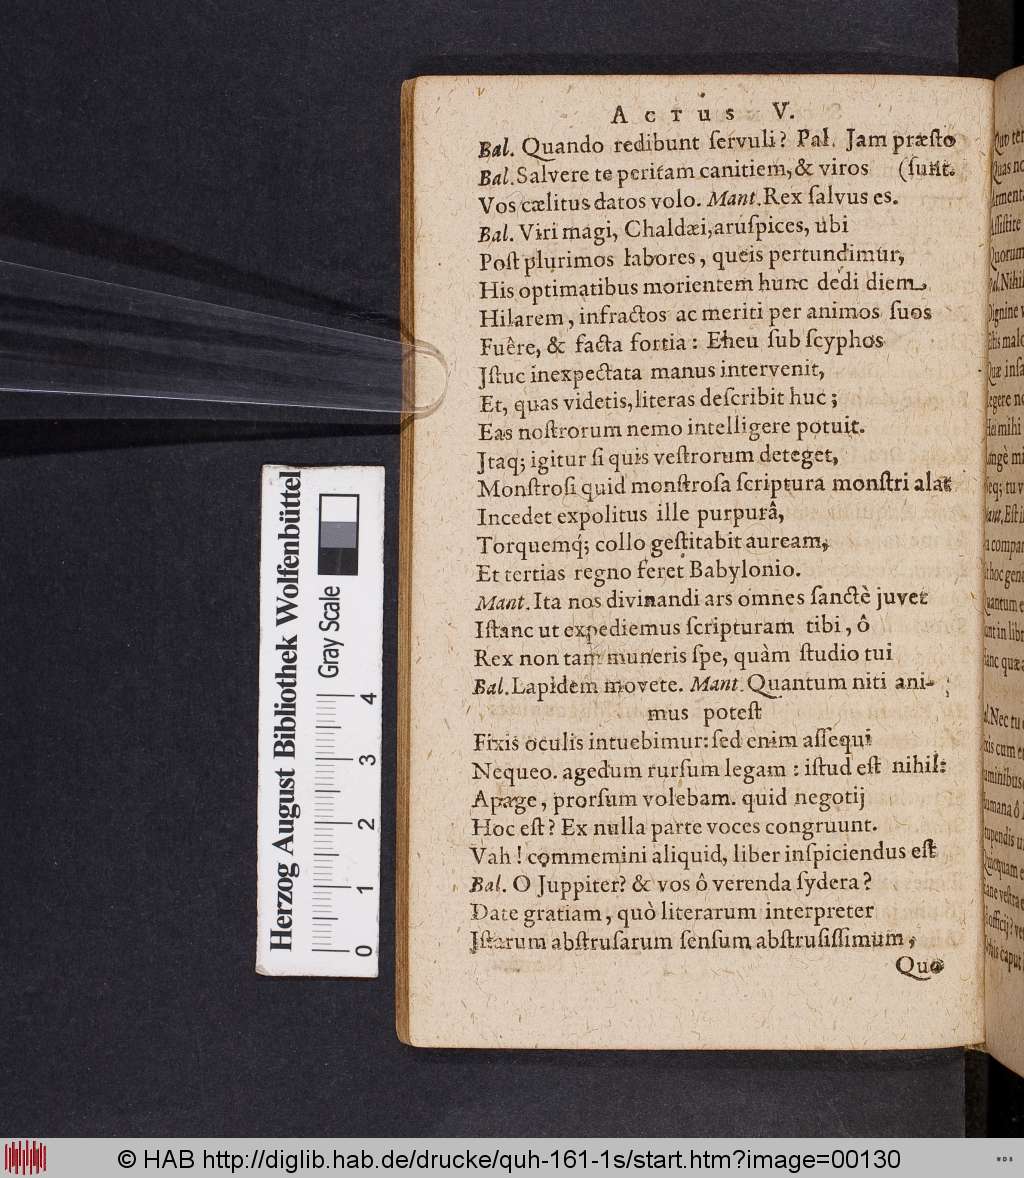 Actus V.
Bal. Quando redibunt ſervuli? Pal. Jam præſto
Bal. Salvere te peritam canitiem, & viros (ſunt.
Vos cælitus datos volo. Mant. Rex ſalvus es.
Bal. Viri magi, Chaldæi, aruſpices, ubi
Poſt plurimos labores, queis pertundimur,
His optimatibus morientem hunc dedi diem,
Hilarem, infractos ac meriti per animos ſuos
Fuêre, & facta fortia: Eheu ſub ſcyphos
Jſtuc inexpectata manus intervenit,
Et, quas videtis, literas deſcribit huc;
Eas noſtrorum nemo intelligere potuit.
Jtaq; igitur ſi quis veſtrorum deteget,
Monſtroſi quid monſtroſa ſcriptura monſtri alat
Incedet expolitus ille purpurâ,
Torquemq́; collo geſtitabit auream,
Et tertias regno feret Babylonio.
Mant. Ita nos divinandi ars omnes ſanctè juvet
Iſtanc ut expediemus ſcripturam tibi, ô
Rex non tam muneris ſpe, quàm ſtudio tui
Bal. Lapidem movete. Mant. Quantum niti ani-
mus poteſt
Fixis oculis intuebimur: ſed enim aſſequi
Nequeo. agedum rurſum legam: iſtud eſt nihil:
Apage, prorſum volebam. quid negotij
Hoc eſt? Ex nulla parte voces congruunt.
Vah! commemini aliquid, liber inſpiciendus eſt
Bal. O Juppiter? & vos ô verenda ſydera?
Date gratiam, quò literarum interpreter
Jſtarum abſtruſarum ſenſum abſtruſiſſimum,
Quo
Herzog August Bibliothek Wolfenbüttel
Gray Scale
0 1 2 3 4
© HAB http://diglib.hab.de/drucke/quh-161-1s/start.htm?image=00130